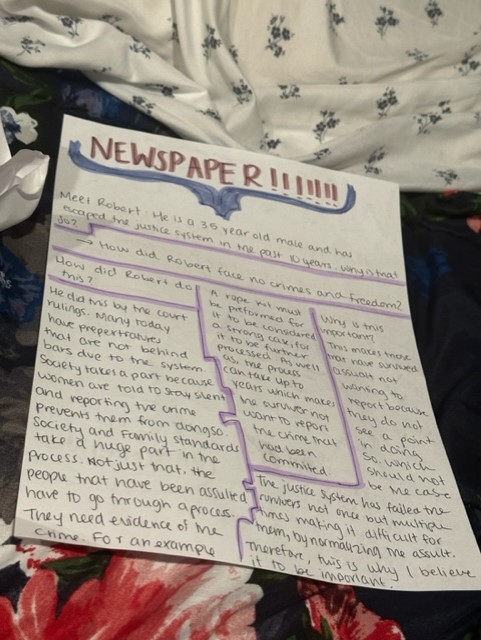 NEWSPAPER!!!!!!!
Meet Robert. He is a 35 year old male and has
escaped the justice system in the past 10 years. Why is that
so?
→ How did Robert face no crimes and freedom?
How did Robert do
this?
He did this by the court
rulings. Many today
have prepertraters
that are not behind
bars due to the system.
Society takes a part because
women are told to stay silent
and reporting the crime
prevents them from doing so.
Society and Family standards
take a huge part in the
process. Not just that, the
people that have been assulted
have to go through a proces.
They need evidence of the
crime. For an example
A rape kit must
be preformed for
it to be considered
a strong case, for
it to be further
processed. As well
as, the process
can take up to
years which makes
the survivor not
want to report
the crime that
had been
commited.
Why is this
important?
This makes those
that have survived
assualt not
wanting to
report because
they do not
see a point
in doing
so. which
should not
be the case
The justice system has failed the
survivers not once but multiple
times making it difficult for
them, by normalizing the assult.
Therefore, this is why I believe
it to be important.